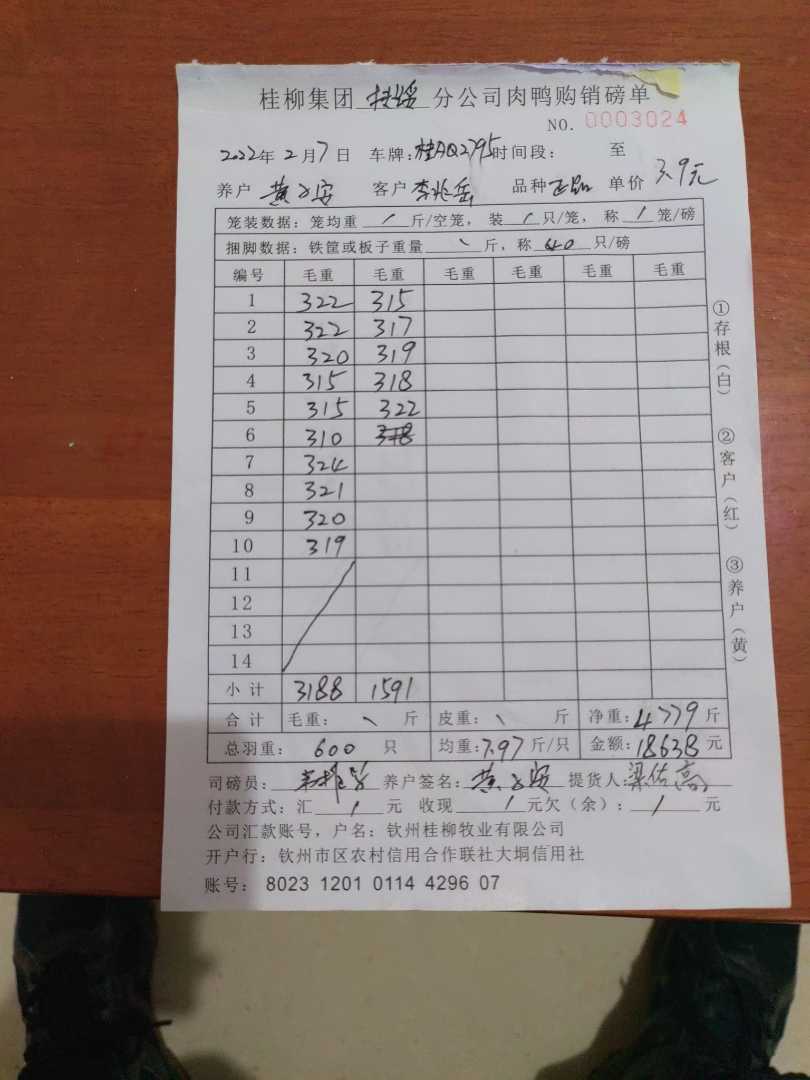 桂柳集团扶绥分公司肉鸭购销磅单
NO. 0003024
2022年2月7日 车牌:桂AQ2795时间段: 至
养户 黄 安 客户 李兆岳 品种 正品 单价 3.9元
笼装数据:笼均重 / 斤/空笼,装 / 只/笼,称 / 笼/磅
捆脚数据:铁筐或板子重量 \ 斤,称 40 只/磅
编号 毛重 毛重 毛重 毛重 毛重 毛重
1 322 315
2 322 317
3 320 319
4 315 318
5 315 322
6 310 318
7 324
8 321
9 320
10 319
11
12
13
14
小计 3188 1591
合计 毛重: \ 斤 皮重: \ 斤 净重:4779斤
总羽重: 600 只 均重:7.97斤/只 金额:18638元
司磅员: 养户签名:黄 安 提货人:梁佐高
付款方式:汇 / 元 收现 / 元欠(余): / 元
公司汇款账号,户名:钦州桂柳牧业有限公司
开户行:钦州市区农村信用合作联社大垌信用社
账号: 8023 1201 0114 4296 07
①存根(白)
②客户(红)
③养户(黄)